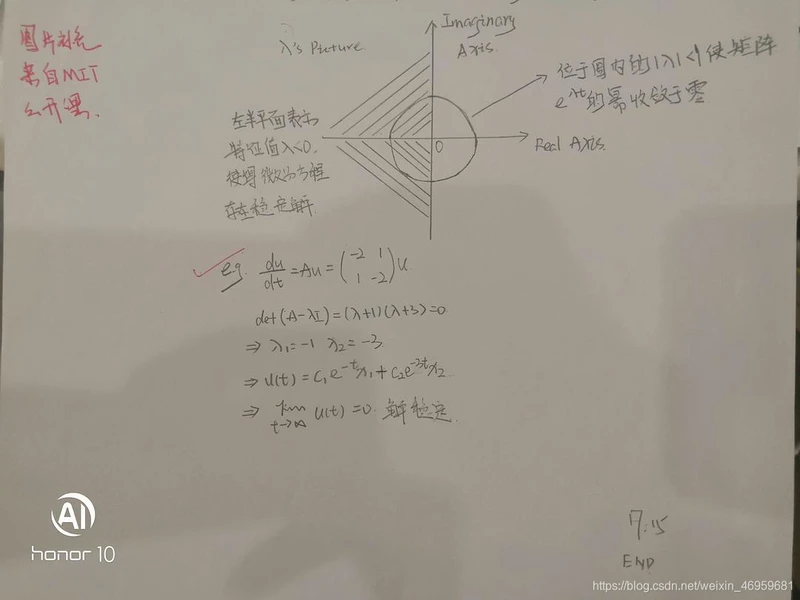 图片补充
来自MIT
公开课.
λ's Picture
Imaginary
Axis.
位于圆内的|λ|<1使矩阵
e^λt的幂收敛于零
左半平面表示
特征值λ<0.
使得微分方程
存在稳定解
0
Real Axis.
e.g. du/dt=Au=(-2 1; 1 -2)u
det(A-λI)=(λ+1)(λ+3)=0
⇒ λ₁=-1 λ₂=-3
⇒ u(t)=c₁e^-t x₁+c₂e^-3t x₂
⇒ lim t→∞ u(t)=0. 解稳定.
7:15
END
AI
honor 10
https://blog.csdn.net/weixin_46959681